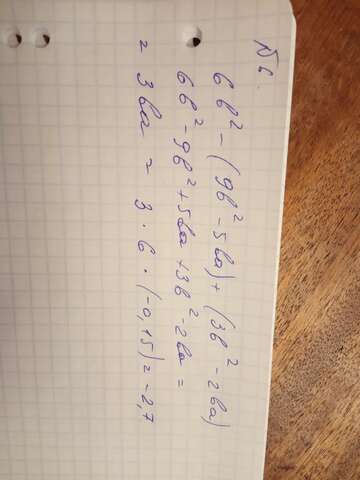 № 6.
6b² - (9b² - 5ba) + (3b² - 2ba)
6b² - 9b² + 5ba + 3b² - 2ba =
= 3ba = 3 · 6 · (-0,15) = -2,7